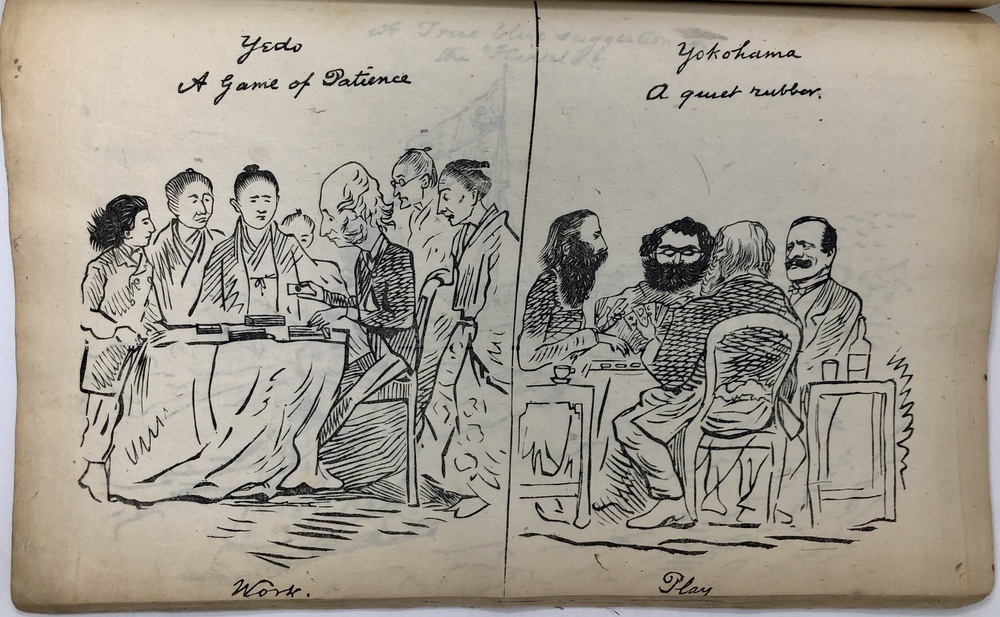 Yedo
A Game of Patience
Work.
Yokohama
A quiet rubber.
Play
A True blue suggestion
the